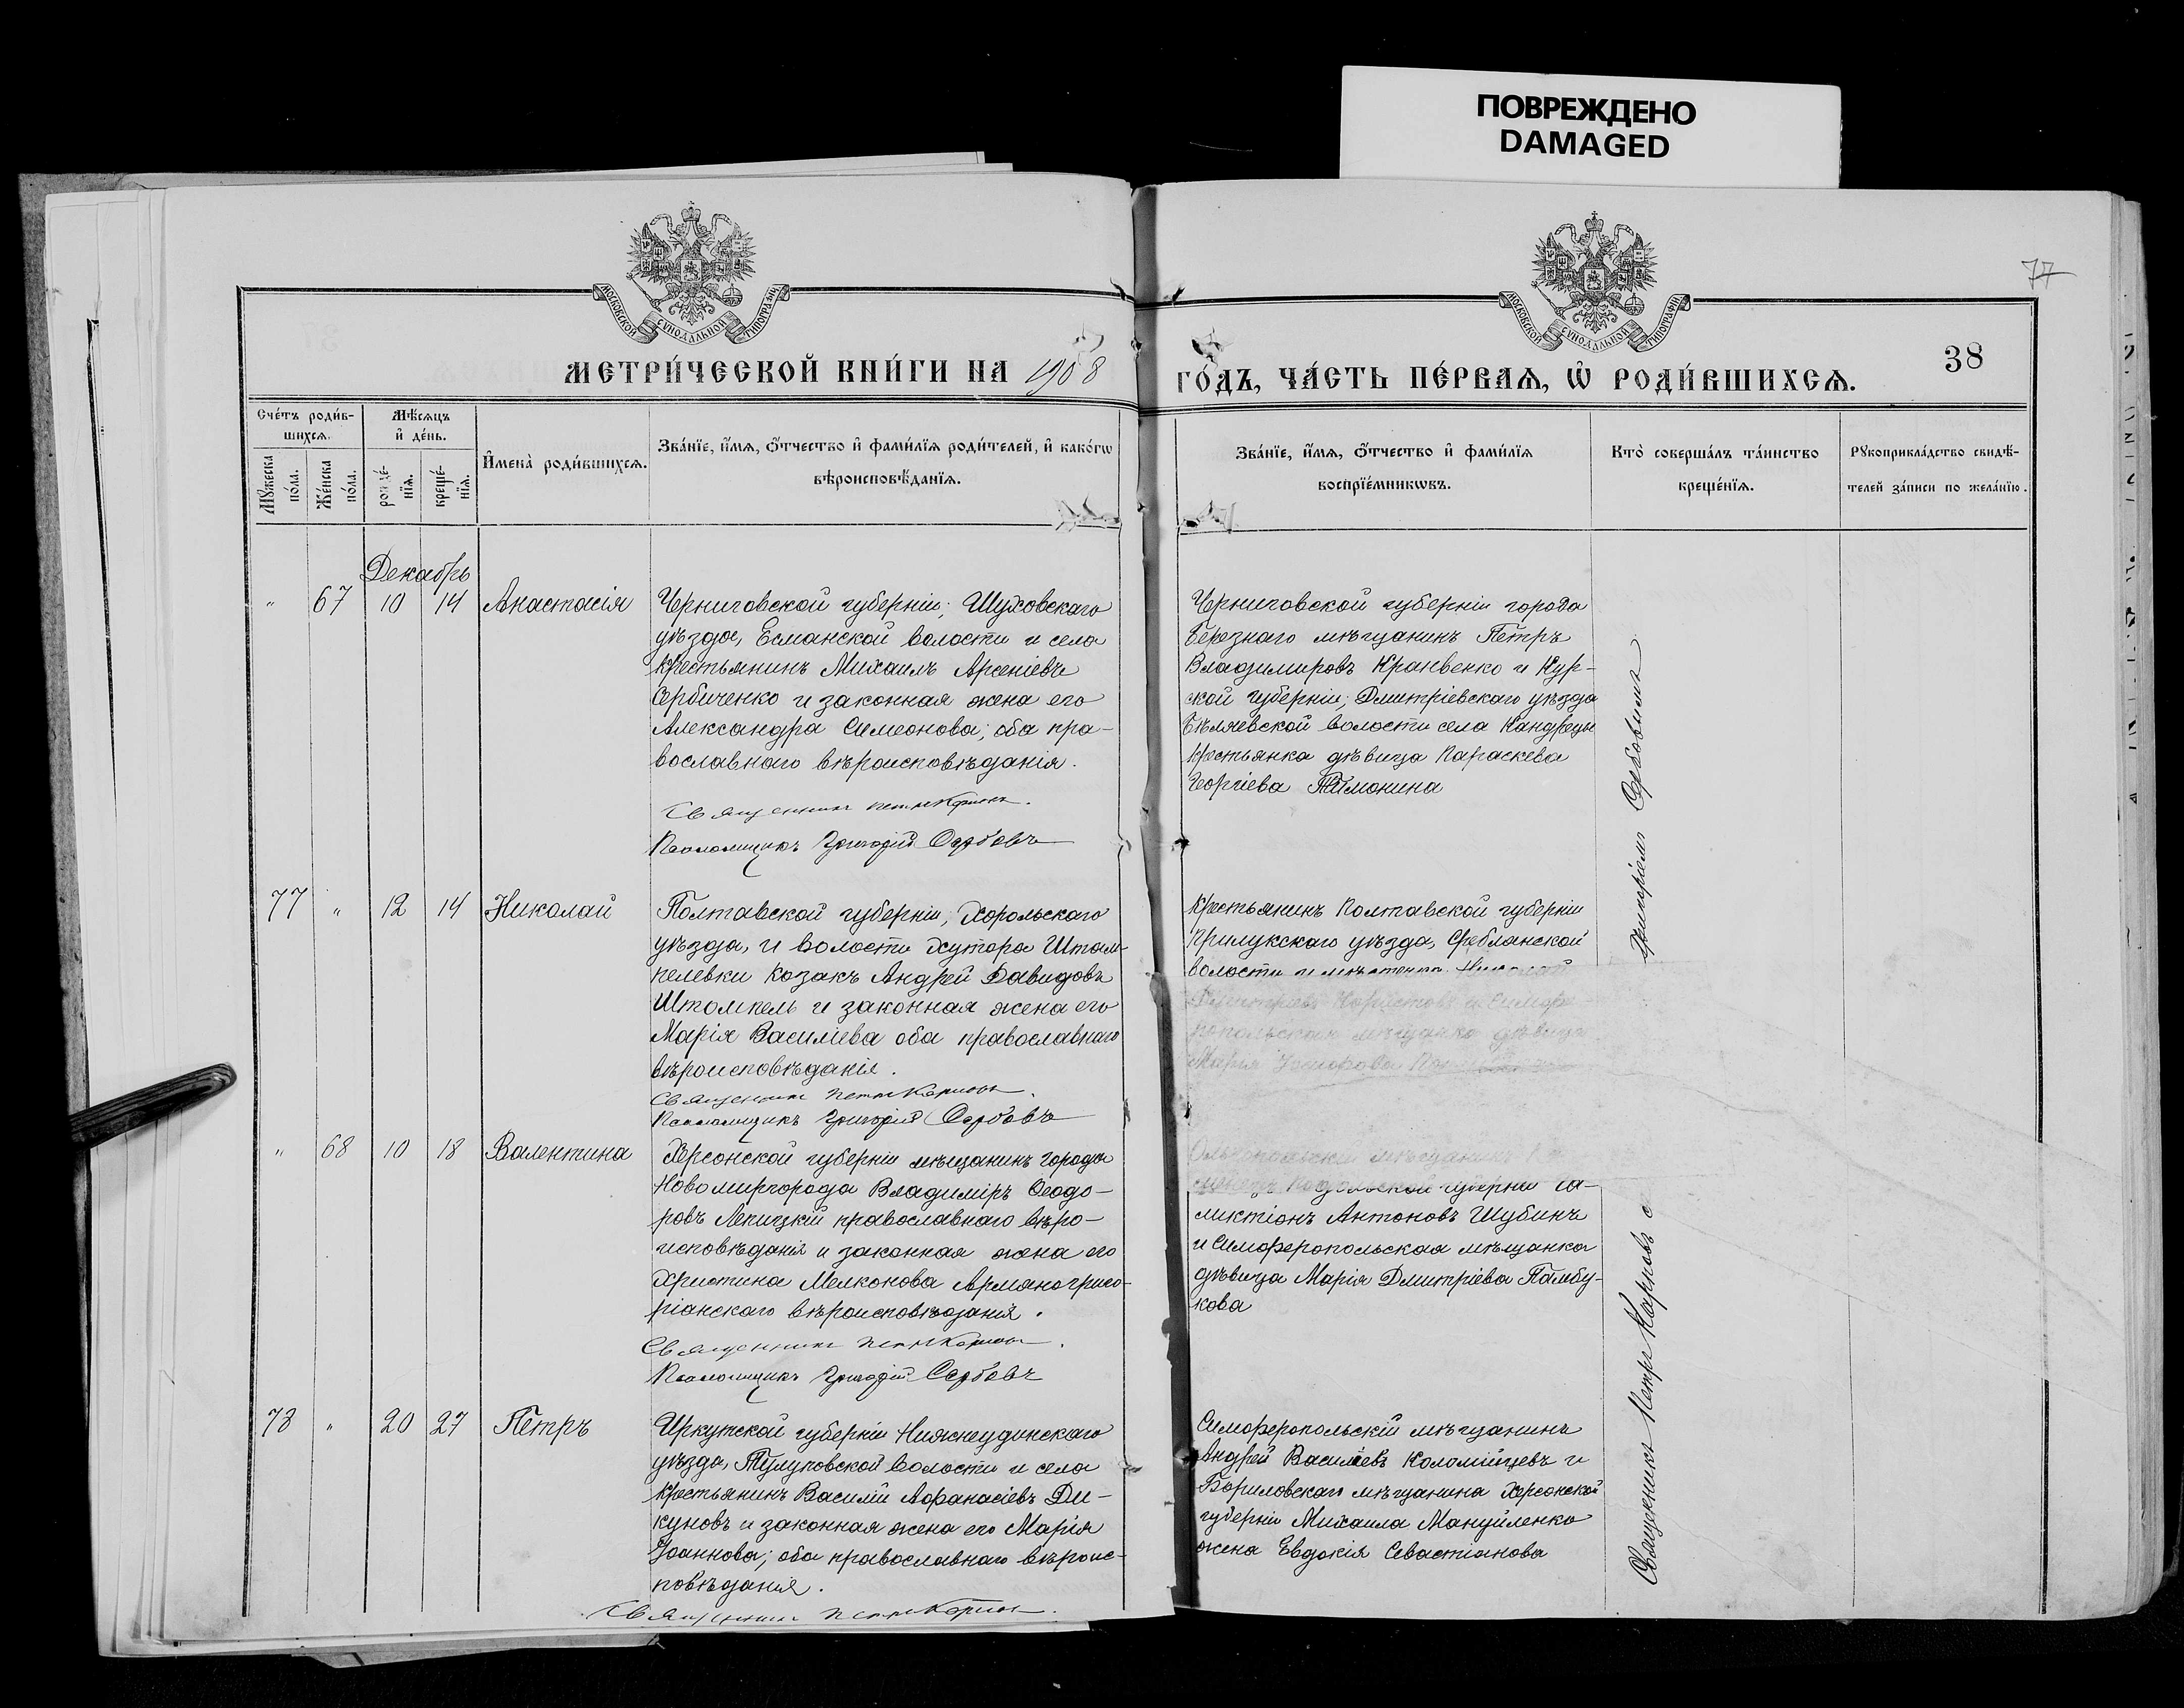 ПОВРЕЖДЕНО
DAMAGED
77
38
МОСКОВСКОЙ СѴНОДАЛЬНОЙ ТИПОГРАФІИ
МОСКОВСКОЙ СѴНОДАЛЬНОЙ ТИПОГРАФІИ
МЕТРИ́ЧЕСКОЙ КНИ́ГИ НА 1908
ГО́ДЪ, ЧА́СТЬ ПЕ́РВАѦ, Ѡ҆ РОДИ́ВШИХСѦ.
Сче́тъ роди́в-
шихсѧ.
Мꙋ́жеска
по́ла.
Же́нска
по́ла.
Мѣ́сѧцъ
и҆ де́нь.
рожде́-
нїѧ.
креще́-
нїѧ.
И҆мена̀ роди́вшихсѧ.
Зва́нїе, и҆́мѧ, ѻ҆́тчество и҆ фами́лїѧ роди́телей, и҆ како́гѡ
вѣроисповѣ́данїѧ.
Зва́нїе, и҆́мѧ, ѻ҆́тчество и҆ фами́лїѧ
воспрїе́мникѡвъ.
Кто̀ соверша́лъ та́инство
креще́нїѧ.
Рꙋкоприкла́дство свидѣ́-
телей за́писи по жела́нїю.
Декабрь
" 67 10 14 Анастасія
Черниговской губерніи, Глуховскаго
уѣзда, Есманской волости и села
крестьянинъ Михаилъ Арсеніевъ
Сербиченко и законная жена его
Александра Симеонова; оба пра-
вославнаго вѣроисповѣданія.
Священникъ Петръ Карповъ.
Псаломщикъ Григорій Сербовъ
Черниговской губерніи города
Березнаго мѣщанинъ Петръ
Владимировъ Кранвенко и Кур-
ской губерніи, Дмитріевскаго уѣзда
Бѣляевской волости села
крестьянка дѣвица Параскева
Георгіева Тимонина
77 " 12 14 Николай
Полтавской губерніи, Хорольскаго
уѣзда, и волости хутора Штом-
пелевки козакъ Андрей Давидовъ
Штомпель и законная жена его
Марія Василіева оба православнаго
вѣроисповѣданія.
Священникъ Петръ Карповъ.
Псаломщикъ Григорій Сербовъ
Крестьянинъ Полтавской губерніи
Прилукскаго уѣзда, Сребланской
волости и мѣстечка
и Симферо-
польская мѣщанка дѣвица
Марія
" 68 10 18 Валентина
Херсонской губерніи мѣщанинъ города
Новомиргорода Владиміръ Ѳеодо-
ровъ Лепицкій православнаго вѣро-
исповѣданія и законная жена его
Христина Мелконова Армяно григо-
ріанскаго вѣроисповѣданія.
Священникъ Петръ Карповъ.
Псаломщикъ Григорій Сербовъ
Ольгопольскій мѣщанинъ
Подольской губерніи Га-
ликтіонъ Антоновъ Шубинъ
и Симферопольская мѣщанка
дѣвица Марія Дмитріева Памбу-
кова
78 " 20 27 Петръ
Иркутской губерніи Нижнеудинскаго
уѣзда, Тулуповской волости и села
крестьянинъ Василій Афанасіевъ Ди-
куновъ и законная жена его Марія
Іоаннова; оба православнаго вѣроис-
повѣданія.
Священникъ Петръ Карповъ.
Симферопольскій мѣщанинъ
Андрей Василіевъ Коломійцевъ и
мѣщанина Херсонской
губерніи Михаила Мануйленко
жена Евдокія Севастіанова
Священникъ Петръ Карповъ с
Григоріемъ Сербовымъ